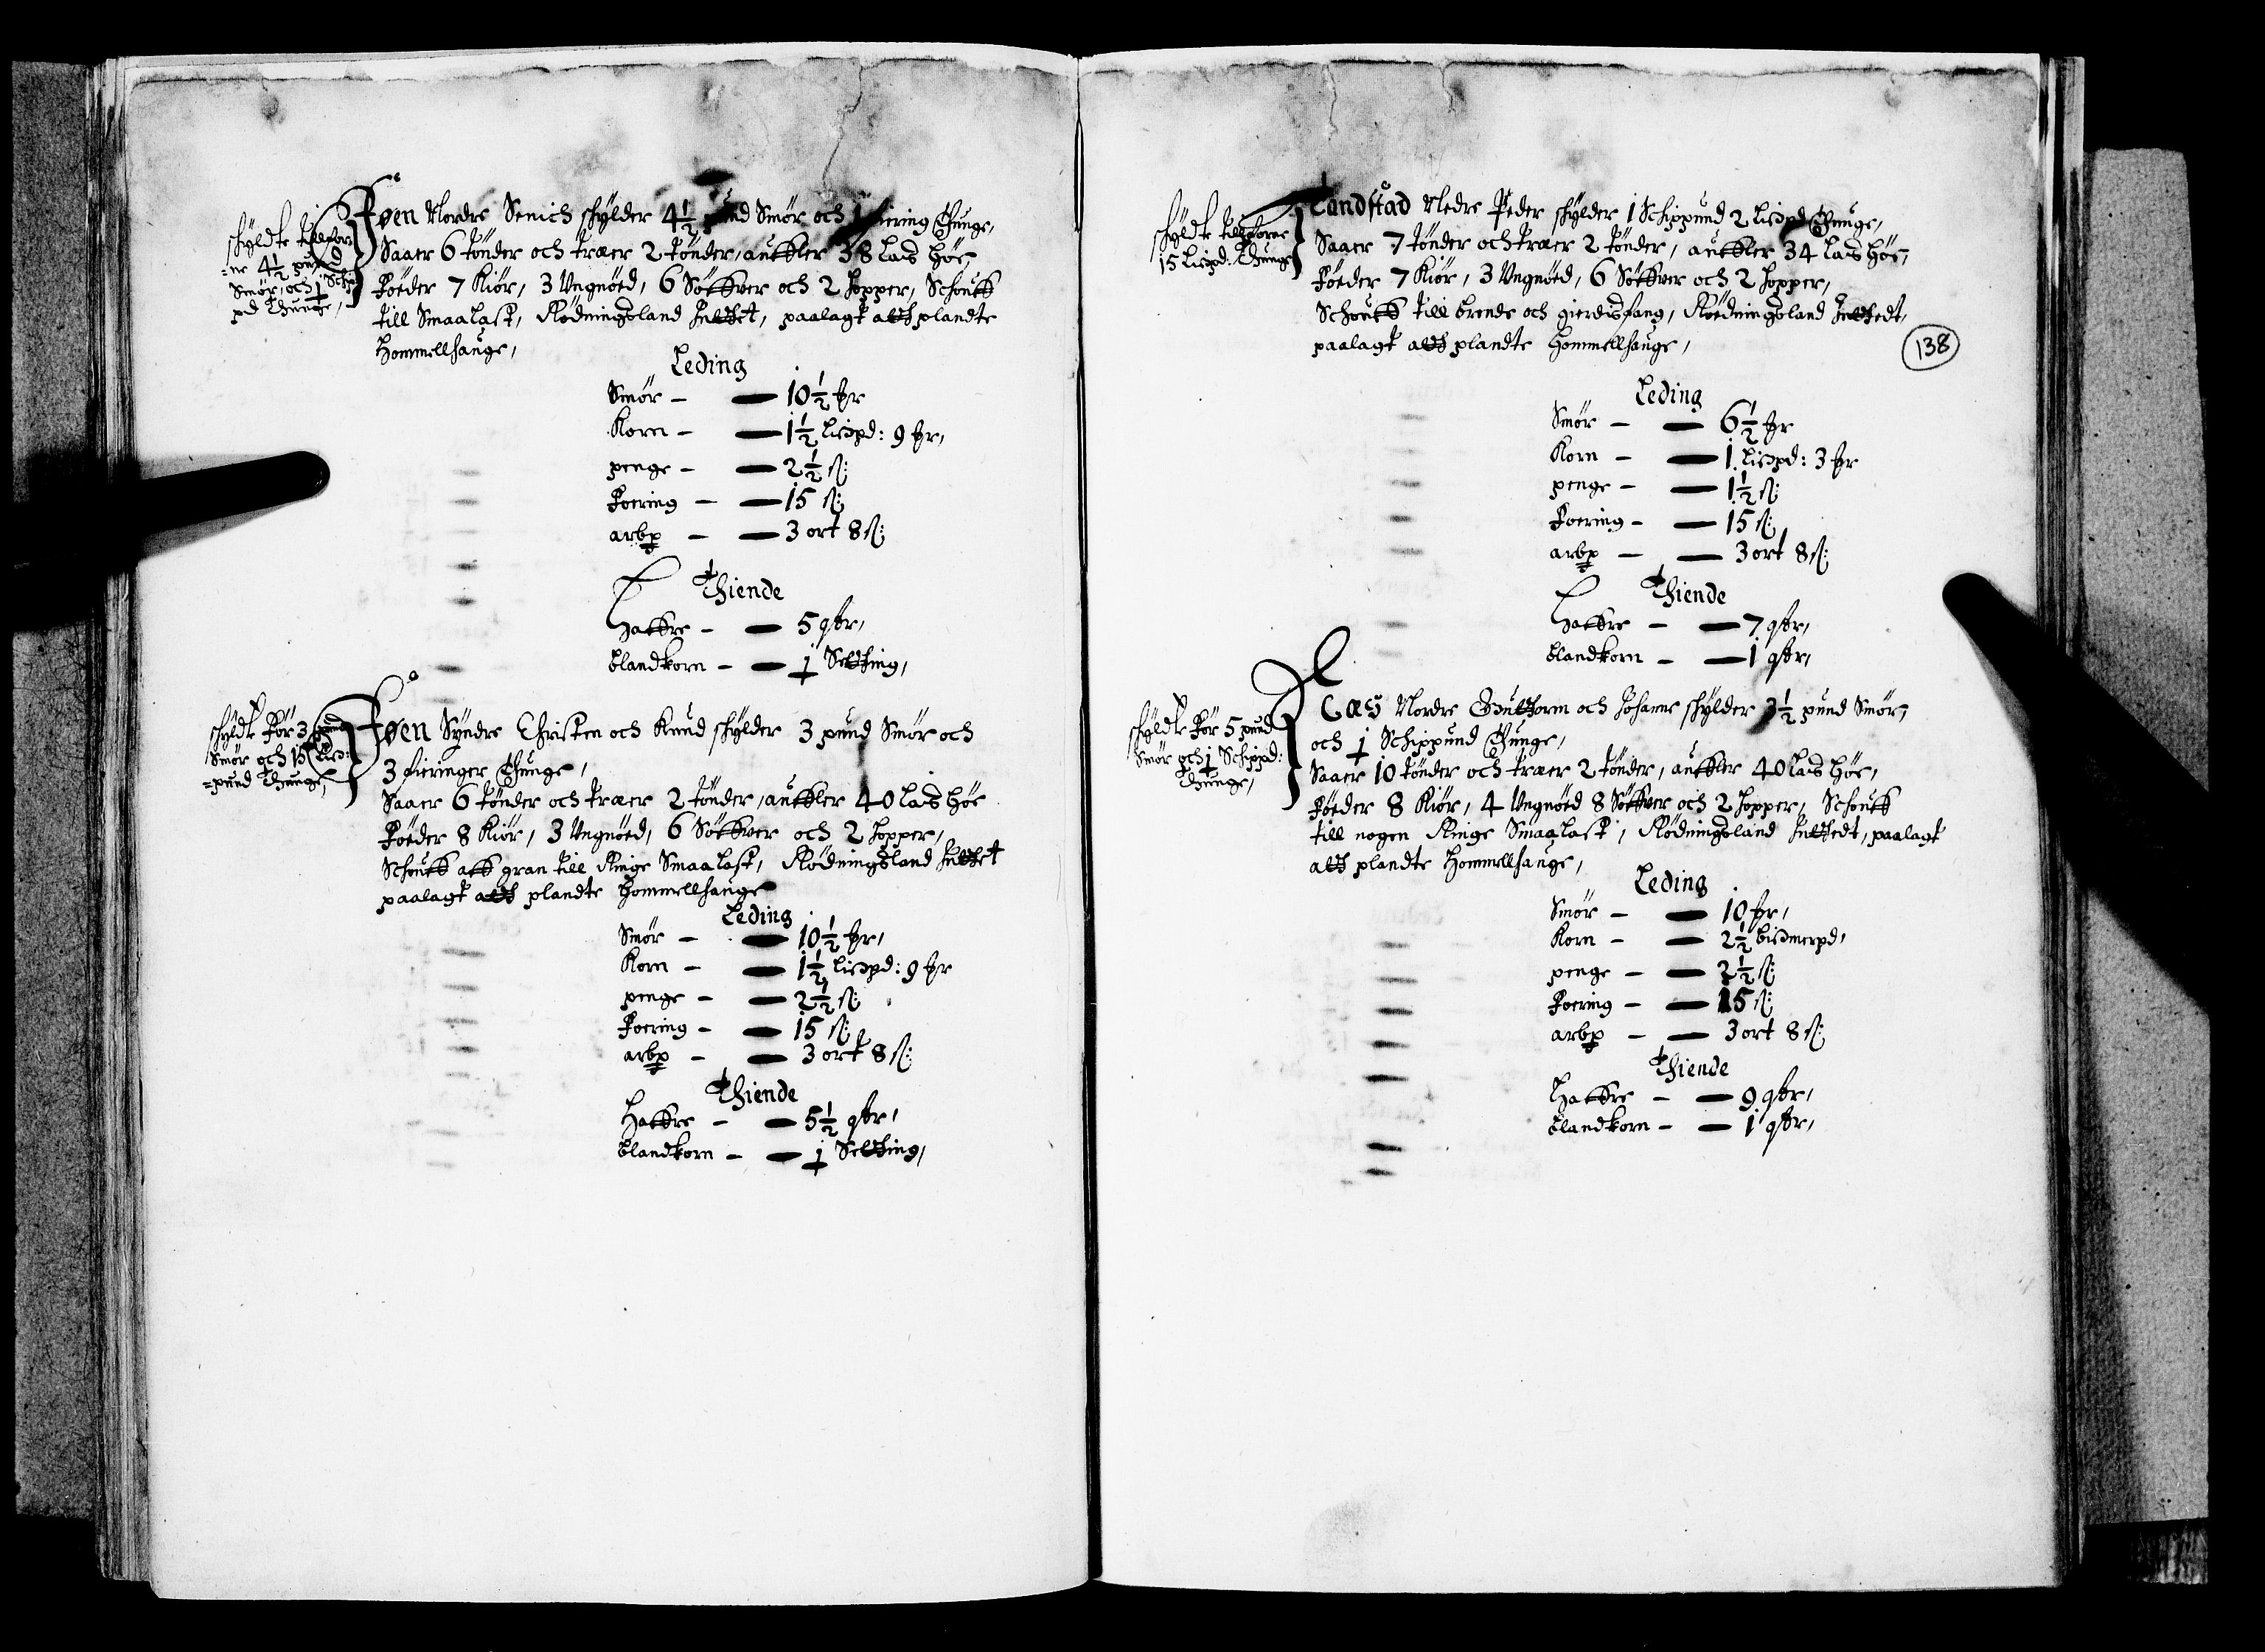 skyldte tillfor=
=ne 4½ pund
Smør, och 1 Schip
pd Thunge,
Føen Nordre Senich skylder 4½ pund Smør och 1 fiering Thunge,
Saaer 6 tønder och træer 2 tønder, auffler 38 Las høe
Føeder 7 Kiør, 3 Ungnøed, 6 Søffuer och 2 hopper, Schouff
till Smaalast, Rødningsland Intthet, paalagt atth plandte
Hommellhauge,
Leding
Smør – — 10½ ℔r
Korn – — 1½ Lispd: 9 ℔r,
penge – — 2½ ß:
Foering – — 15 ß:
arbp – — 3 ort 8 ß:
Thiende
Haffre – — 5 qtr,
blandkorn – — 1 Setthing,
skyldt Før 3 pund
Smør och 15 Lis:
=pund Thunge,
Føen Syndre Christen och Knud skylder 3 pund Smør och
3 fieringer Thunge,
Saaer 6 tønder och træer 2 tønder, auffler 40 Las høe
Føeder 8 Kiør, 3 Ungnøed, 6 Søffuer och 2 hopper,
Schouff aff gran till Ringe Smaalast, Rødningsland Intthet
paalagt atth plandte hommellhauge
Leding
Smør – — 10½ ℔r,
Korn – — 1½ Lispd: 9 ℔r
penge – — 2½ ß:
Foering – — 15 ß:
arbp – — 3 ort 8 ß:
Thiende
Haffre – — 5½ qtr,
blandkorn – — 1 Setthing,
skyldte tillforne
15 Lispd: Thunge
Landstad Nedre Peder skylder 1 Schippund 2 Lispd Thunge,
Saaer 7 tønder och træer 2 tønder, auffler 34 Las høe,
Føeder 7 Kiør, 3 Ungnøed, 6 Søffuer och 2 hopper,
Schouff till brende och gierdisfang, Røedningsland Intthedt,
paalagt atth plandte hommellhauge,
138
Leding
Smør – — 6½ ℔r
Korn – — 1 Lispd: 3 ℔r
penge – — 1½ ß:
Foering – — 15 ß:
arbp – — 3 ort 8 ß:
Thiende
Haffre – — 7 qtr,
blandkorn – — 1 qtr,
skyldt Før 5 pund
Smør och 1 Schippd:
Thunge,
Nordre Gutthorm och Johanne skylder 3½ pund Smør,
och 1 Schippund Thunge,
Saaer 10 tønder och træer 2 tønder, auffler 40 Las høe,
Føeder 8 Kiør, 4 Ungnøed 8 Søffuer och 2 hopper, Schouff
till nogen Ringe Smaalast, Rødningsland Intthedt, paalagt
atth plandte Hommellhauge,
Leding
Smør – — 10 ℔r,
Korn – — 2½ bismerpd,
penge – — 2½ ß:
Foering – — 15 ß:
arbp – — 3 ort 8 ß:
Thiende
Haffre – — 9 qtr,
blandkorn – — 1 qtr,